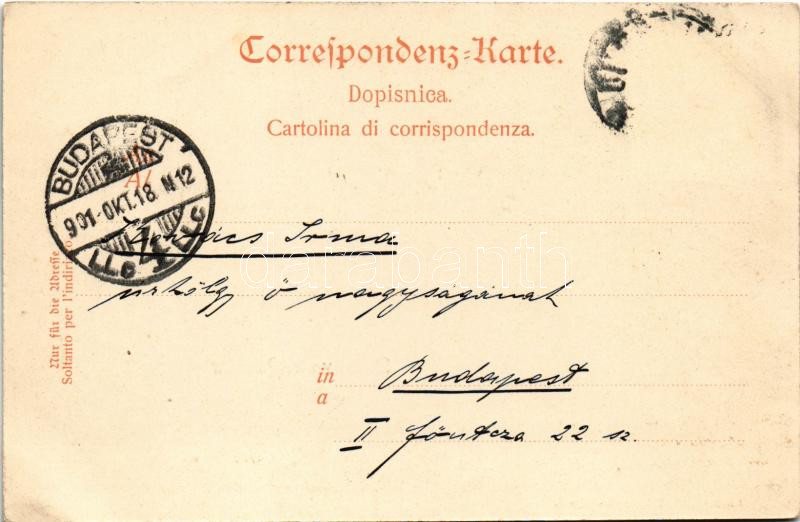 Correspondenz-Karte.
Dopisnica.
Cartolina di corrispondenza.
BUDAPEST
901-OKT.18. N12
Kovács Irma
úrhölgy ő nagyságának
in Budapest
a
II főutcza 22 sz.
Nur für die Adresse
Soltanto per l'indirizzo.
darabanth